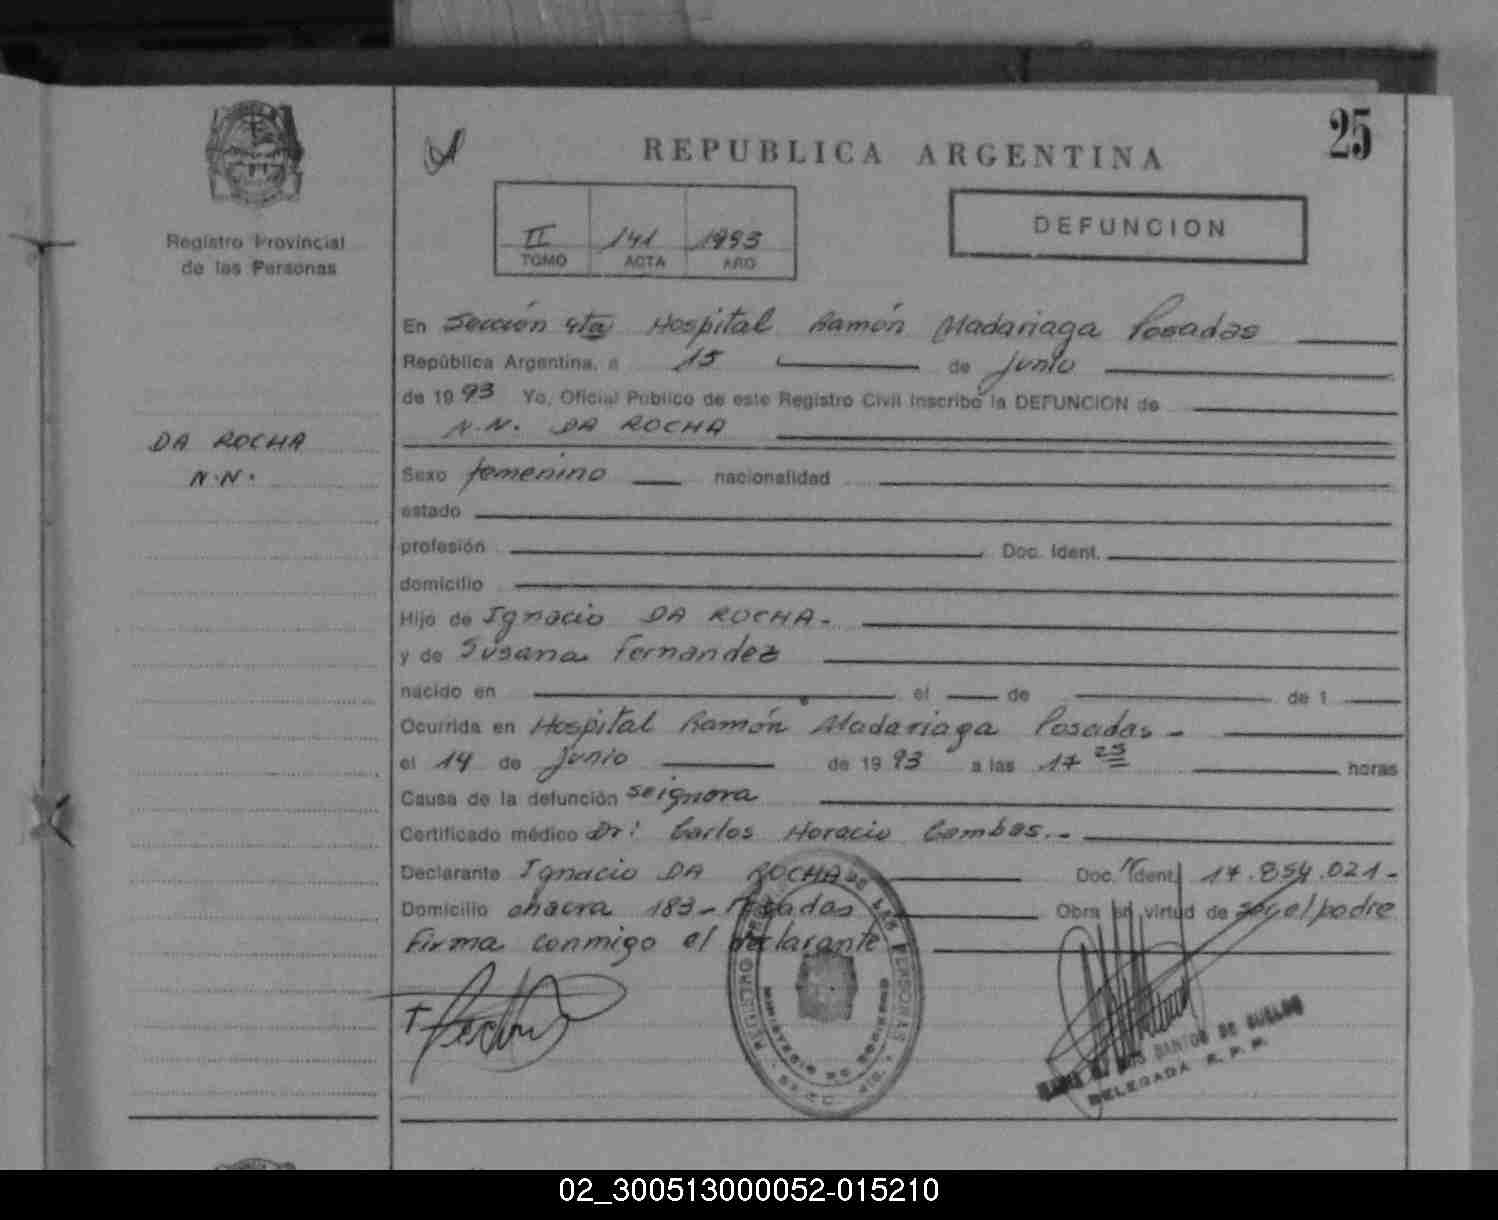 25
REPUBLICA ARGENTINA
Registro Provincial
de las Personas
II 141 1993
TOMO ACTA AÑO
DEFUNCION
En Sección 4ta Hospital Ramón Madariaga Posadas
República Argentina, a 15 de junio
de 1993 Yo, Oficial Público de este Registro Civil inscribo la DEFUNCION de
N.N. DA ROCHA
DA ROCHA
N.N.
Sexo femenino nacionalidad
estado
profesión Doc. Ident.
domicilio
Hijo de Ignacio DA ROCHA.-
y de Susana Fernandez
nacido en el de de 1
Ocurrida en Hospital Ramón Madariaga Posadas-
el 14 de junio de 1993 a las 17 25 horas
Causa de la defunción se ignora
Certificado médico Dr: Carlos Horacio Combas.-
Declarante Ignacio DA ROCHA Doc. Ident. 17.854.021-
Domicilio chacra 183-Posadas Obra en virtud de ser el padre
Firma conmigo el declarante
REGISTRO DE LAS PERSONAS
MINISTERIO DE GOBIERNO
SANTOS DE
DELEGADA R. P. P.
02_300513000052-015210